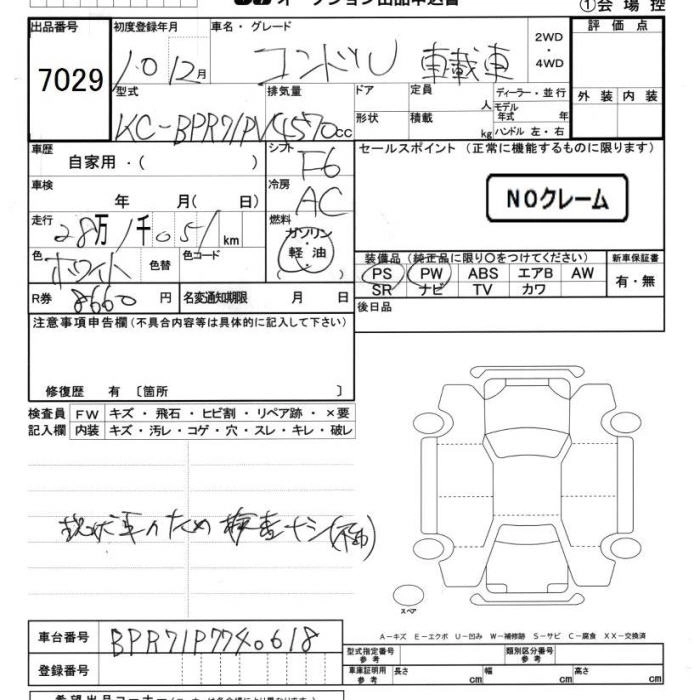 オークション出品申込書 ①会場控
出品番号 初度登録年月 車名・グレード 2WD 評価点
7029 10 12月 コンドル 車載車 ・4WD
型式 排気量 ドア 定員 人 ディーラー・並行 外装 内装
KC-BPR71PV 4570cc 形状 積載 kg モデル年式 年
ハンドル 左・右
車歴 自家用・( ) シフト F6 セールスポイント(正常に機能するものに限ります)
車検 年 月( 日) 冷房 AC NOクレーム
走行 28万1千051km 燃料 ガソリン・軽油
色 ホワイト 色替 色コード 装備品(純正品に限り○をつけてください) 新車保証書
PS PW ABS エアB AW 有・無
SR ナビ TV カワ
R券 8660円 名変通知期限 月 日 後日品
注意事項申告欄(不具合内容等は具体的に記入して下さい)
修復歴 有 〔箇所 〕
検査員 FW キズ・飛石・ヒビ割・リペア跡・×要
記入欄 内装 キズ・汚レ・コゲ・穴・スレ・キレ・破レ
現状車のため 検査ナシ
スペア
A-キズ E-エクボ U-凹み W-補修跡 S-サビ C-腐食 XX-交換済
車台番号 BPR71P7740618 型式指定番号 参考 類別区分番号 参考
登録番号 車庫証明用 参考 長さ cm 幅 cm 高さ cm
希望出品コーナー